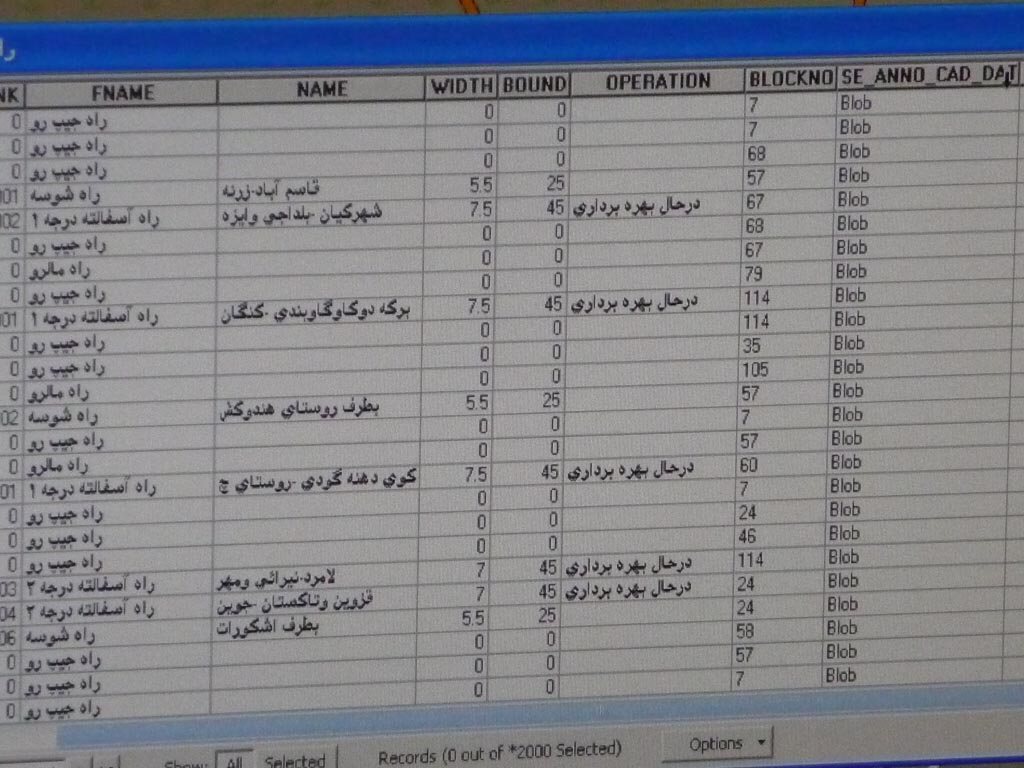 را
NK FNAME NAME WIDTH BOUND OPERATION BLOCKNO SE_ANNO_CAD_DAT
0 راه جيپ رو 0 0 7 Blob
0 راه جيپ رو 0 0 7 Blob
0 راه جيپ رو 0 0 68 Blob
001 راه شوسه قاسم آباد-زرنه 5.5 25 57 Blob
002 راه آسفالته درجه ۱ شهرکيان -بلداجي وايزه 7.5 45 درحال بهره برداري 67 Blob
0 راه جيپ رو 0 0 68 Blob
0 راه مالرو 0 0 67 Blob
0 راه جيپ رو 0 0 79 Blob
001 راه آسفالته درجه ۱ برگه دوکاوگاوبندي -کنگان 7.5 45 درحال بهره برداري 114 Blob
0 راه جيپ رو 0 0 114 Blob
0 راه جيپ رو 0 0 35 Blob
0 راه مالرو 0 0 105 Blob
002 راه شوسه بطرف روستاي هندوکش 5.5 25 57 Blob
0 راه جيپ رو 0 0 7 Blob
0 راه مالرو 0 0 57 Blob
01 راه آسفالته درجه ۱ کوي دهنه گودي -روستاي چ 7.5 45 درحال بهره برداري 60 Blob
0 راه جيپ رو 0 0 7 Blob
0 راه جيپ رو 0 0 24 Blob
0 راه جيپ رو 0 0 46 Blob
03 راه آسفالته درجه ۲ لامرد-نيرائي ومهر 7 45 درحال بهره برداري 114 Blob
04 راه آسفالته درجه ۲ قزوين وتاکستان -جوين 7 45 درحال بهره برداري 24 Blob
06 راه شوسه بطرف اشکورات 5.5 25 24 Blob
0 راه جيپ رو 0 0 58 Blob
0 راه جيپ رو 0 0 57 Blob
0 راه جيپ رو 0 0 7 Blob
Show: All Selected Records (0 out of *2000 Selected) Options